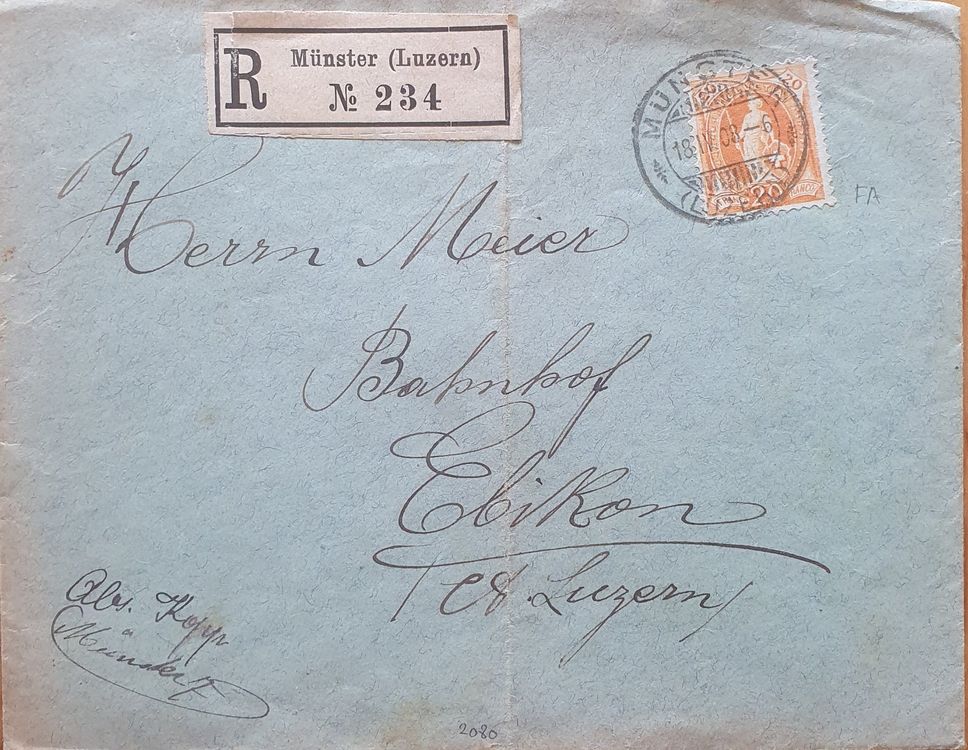 R
Münster (Luzern)
№ 234
MÜNSTER
18.IV.08.-6
(LUZERN)
20
20
FRANCO
FA
Herrn Meier
Bahnhof
Ebikon
(Ct. Luzern)
Abs. Kopp
Münster
2080